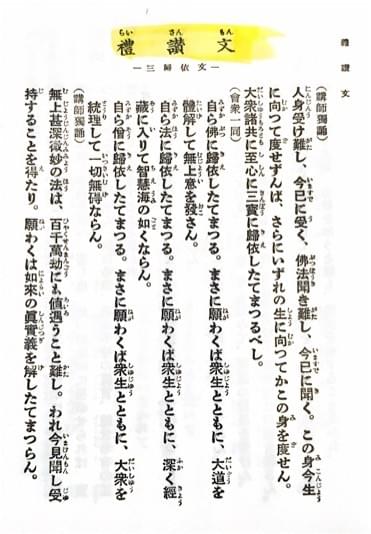 禮讃文
禮讃文
―三歸依文―
(講師獨誦)
人身受け難し、今已に受く。佛法聞き難し、今已に聞く。この身今生
に向つて度せずんば、さらにいずれの生に向つてかこの身を度せん。
大衆諸共に至心に三寶に歸依したてまつるべし。
(會衆一同)
自ら佛に歸依したてまつる。まさに願わくば衆生とともに、大道を
體解して無上意を發さん。
自ら法に歸依したてまつる。まさに願わくば衆生とともに、深く經
藏に入りて智慧海の如くならん。
自ら僧に歸依したてまつる。まさに願わくば衆生とともに、大衆を
統理して一切無礙ならん。
(講師獨誦)
無上甚深微妙の法は、百千萬劫にも値遇うこと難し。われ今見聞し受
持することを得たり。願わくは如來の眞實義を解したてまつらん。